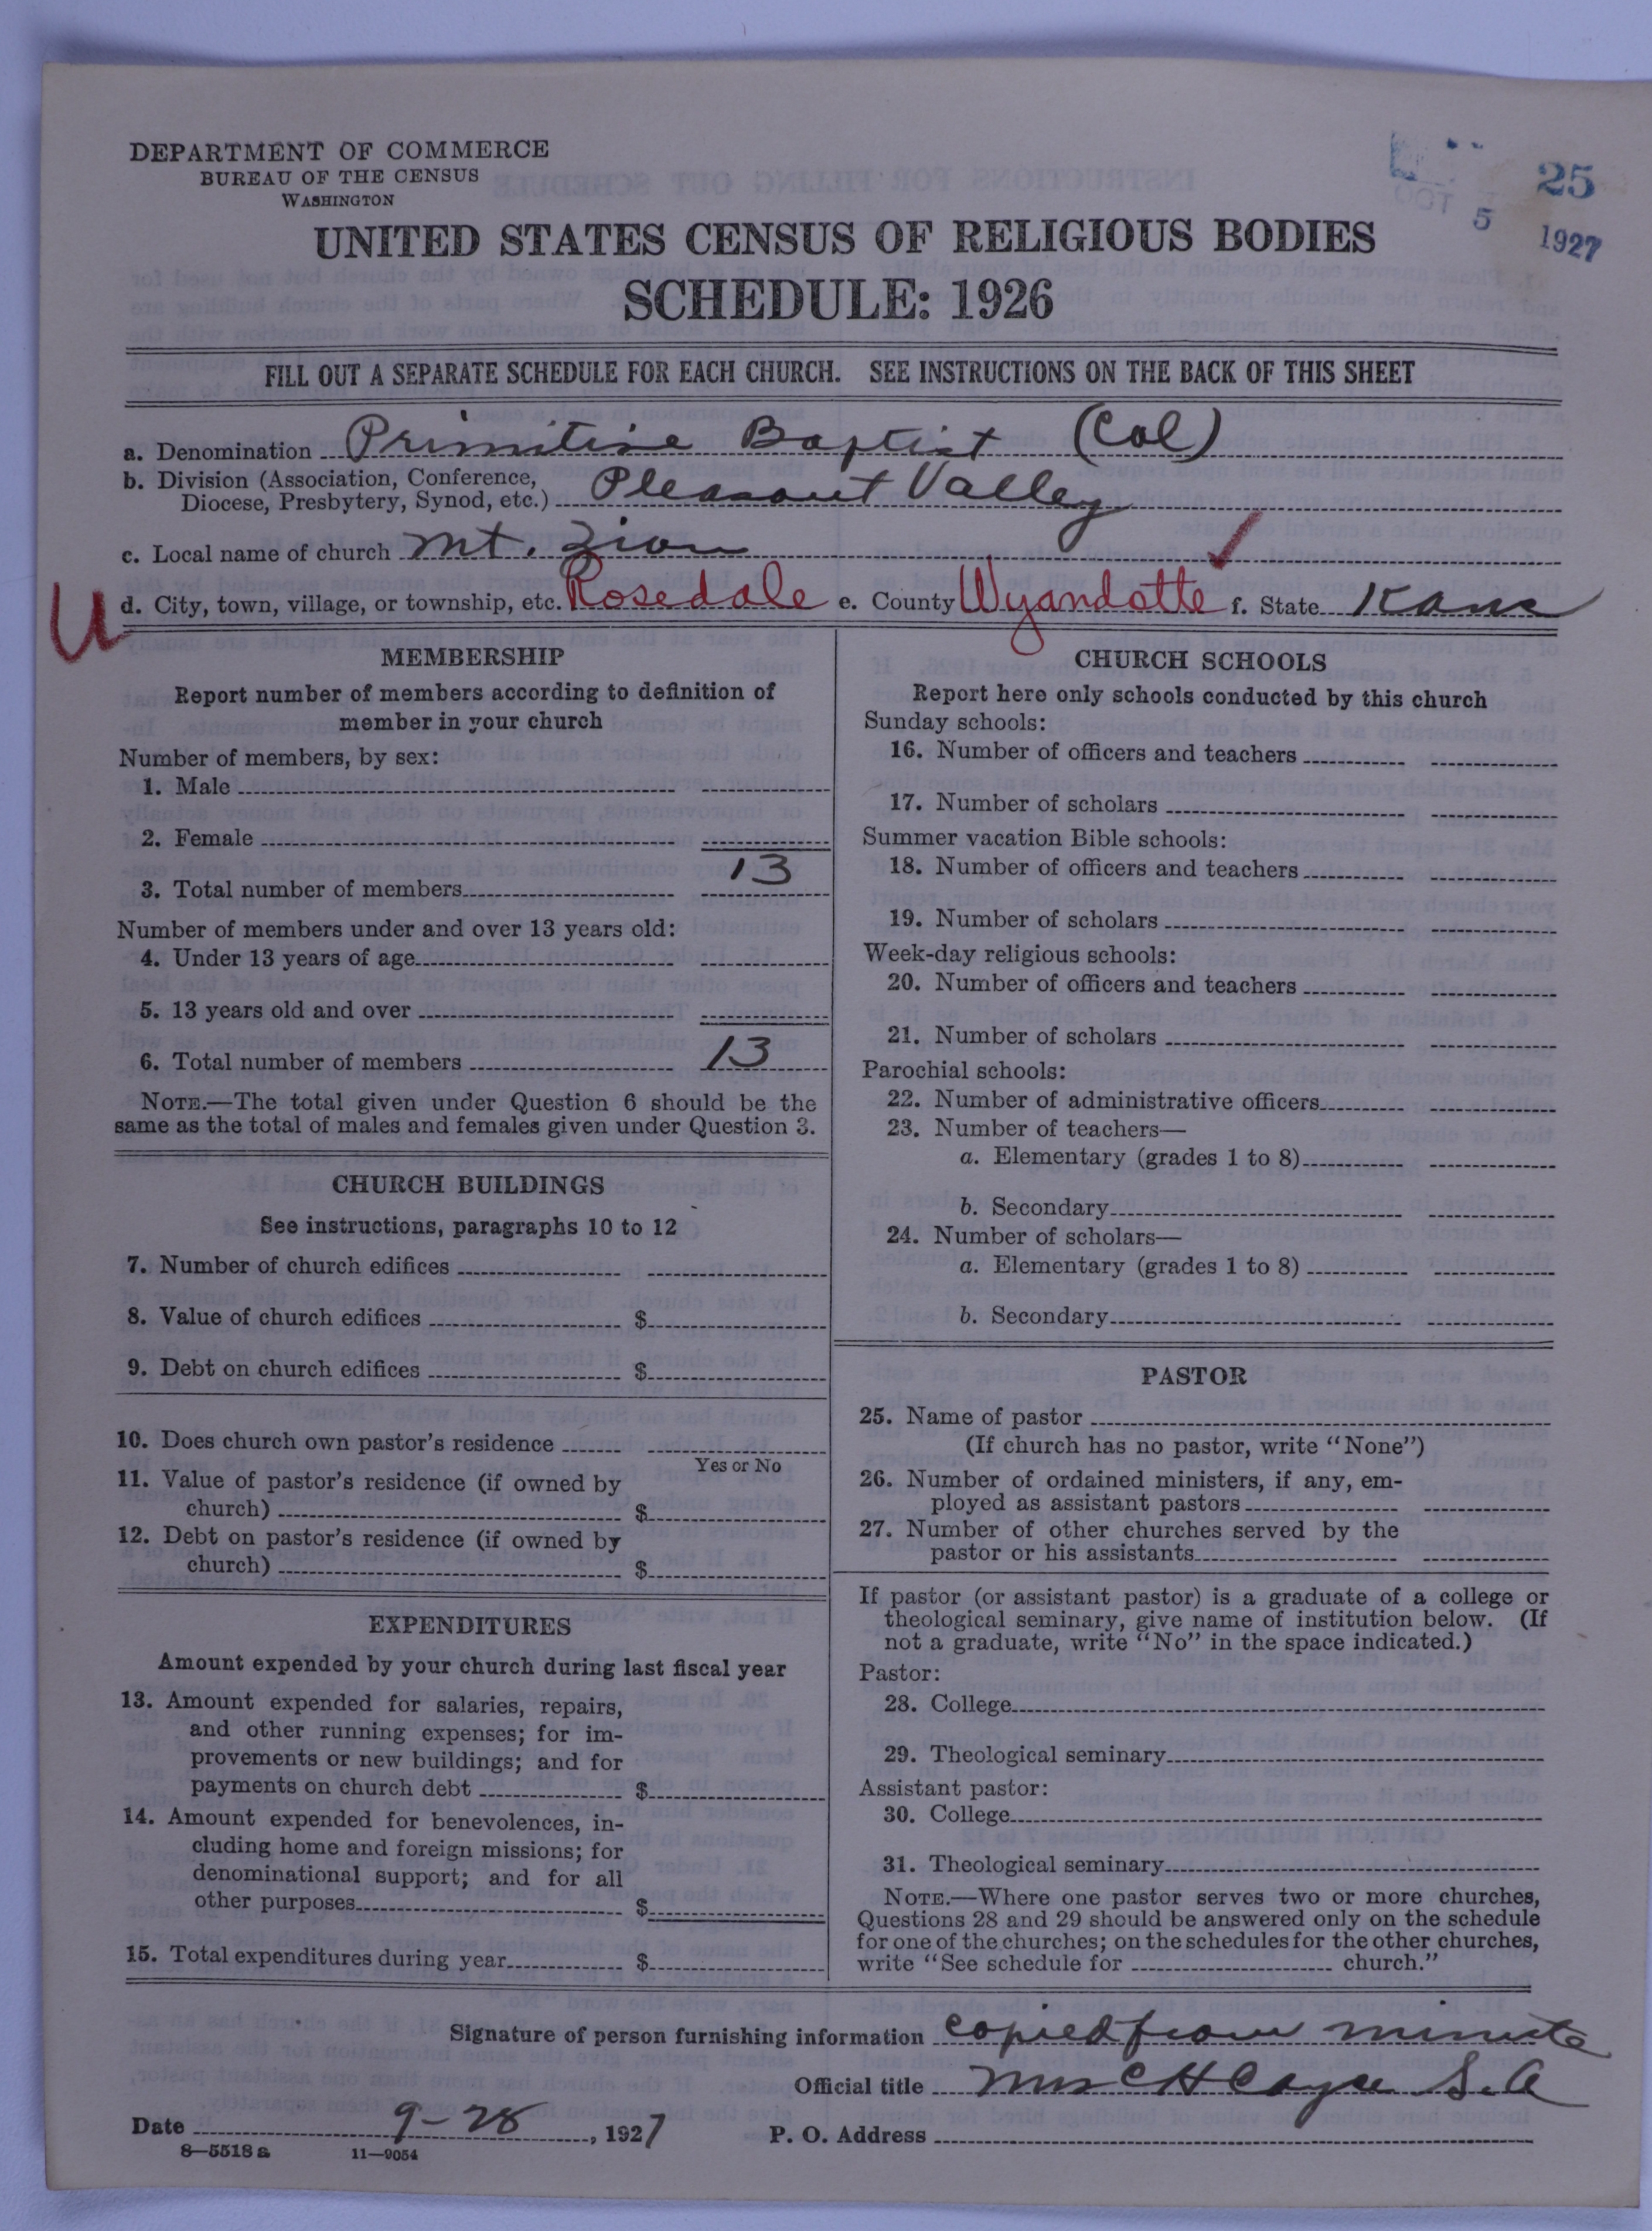 DEPARTMENT OF COMMERCE
BUREAU OF THE CENSUS
WASHINGTON
25
OCT 5 1927
UNITED STATES CENSUS OF RELIGIOUS BODIES
SCHEDULE: 1926
FILL OUT A SEPARATE SCHEDULE FOR EACH CHURCH. SEE INSTRUCTIONS ON THE BACK OF THIS SHEET
a. Denomination Primitive Baptist (Col)
b. Division (Association, Conference,
Diocese, Presbytery, Synod, etc.) Pleasant Valley
c. Local name of church Mt. Zion
U d. City, town, village, or township, etc. Rosedale e. County Wyandotte f. State Kans
MEMBERSHIP
Report number of members according to definition of
member in your church
Number of members, by sex:
1. Male
2. Female
3. Total number of members 13
Number of members under and over 13 years old:
4. Under 13 years of age
5. 13 years old and over
6. Total number of members 13
NOTE.—The total given under Question 6 should be the
same as the total of males and females given under Question 3.
CHURCH BUILDINGS
See instructions, paragraphs 10 to 12
7. Number of church edifices
8. Value of church edifices $
9. Debt on church edifices $
10. Does church own pastor's residence
Yes or No
11. Value of pastor's residence (if owned by
church) $
12. Debt on pastor's residence (if owned by
church) $
EXPENDITURES
Amount expended by your church during last fiscal year
13. Amount expended for salaries, repairs,
and other running expenses; for im-
provements or new buildings; and for
payments on church debt $
14. Amount expended for benevolences, in-
cluding home and foreign missions; for
denominational support; and for all
other purposes $
15. Total expenditures during year $
CHURCH SCHOOLS
Report here only schools conducted by this church
Sunday schools:
16. Number of officers and teachers
17. Number of scholars
Summer vacation Bible schools:
18. Number of officers and teachers
19. Number of scholars
Week-day religious schools:
20. Number of officers and teachers
21. Number of scholars
Parochial schools:
22. Number of administrative officers
23. Number of teachers—
a. Elementary (grades 1 to 8)
b. Secondary
24. Number of scholars—
a. Elementary (grades 1 to 8)
b. Secondary
PASTOR
25. Name of pastor
(If church has no pastor, write "None")
26. Number of ordained ministers, if any, em-
ployed as assistant pastors
27. Number of other churches served by the
pastor or his assistants
If pastor (or assistant pastor) is a graduate of a college or
theological seminary, give name of institution below. (If
not a graduate, write "No" in the space indicated.)
Pastor:
28. College
29. Theological seminary
Assistant pastor:
30. College
31. Theological seminary
NOTE.—Where one pastor serves two or more churches,
Questions 28 and 29 should be answered only on the schedule
for one of the churches; on the schedules for the other churches,
write "See schedule for church."
Signature of person furnishing information copied from minute
Official title Mrs C H Cayce S.A
Date 9-28, 1927 P. O. Address
8—5518 a 11—9054